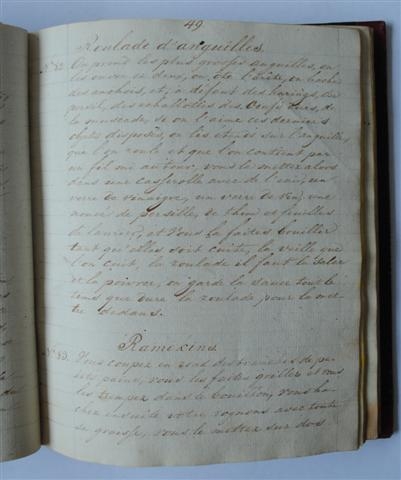 49.
Roulade d'anguilles.
N.° 82. On prend les plus grosses anguilles, on
les ouvre de dans, on ôte l'arête, on hache
des anchois, et, à défaut des harings, du
persil, des echallottes des oeufs durs, de
la muscade, si on l'aime ces derniers
objets disposés, on les étends sur l'anguille,
que l'on roule et que l'on contient par
un fil mi autour, vous la mettez alors
dans une casserolle avec de l'eau, un
verre de venaigre, un verre de vin, une
nouée de persille, de thim et feuilles
de laurier, et vous la faites bouiller
tant qu'elles soit cuite, la veille que
l'on cuit, la roulade il faut la saler
et la poivrer, on garde la sauce tout le
tems que dure la roulade, pour la met-
tre dedans.
Ramexins
N.° 83. Vous coupez en rond des tranches de pe-
tits pains, vous les faites griller et vous
les trempez dans le bouillon, vous ha-
chez ensuite votre rognons avec toute
sa graisse, vous le mettez sur dos